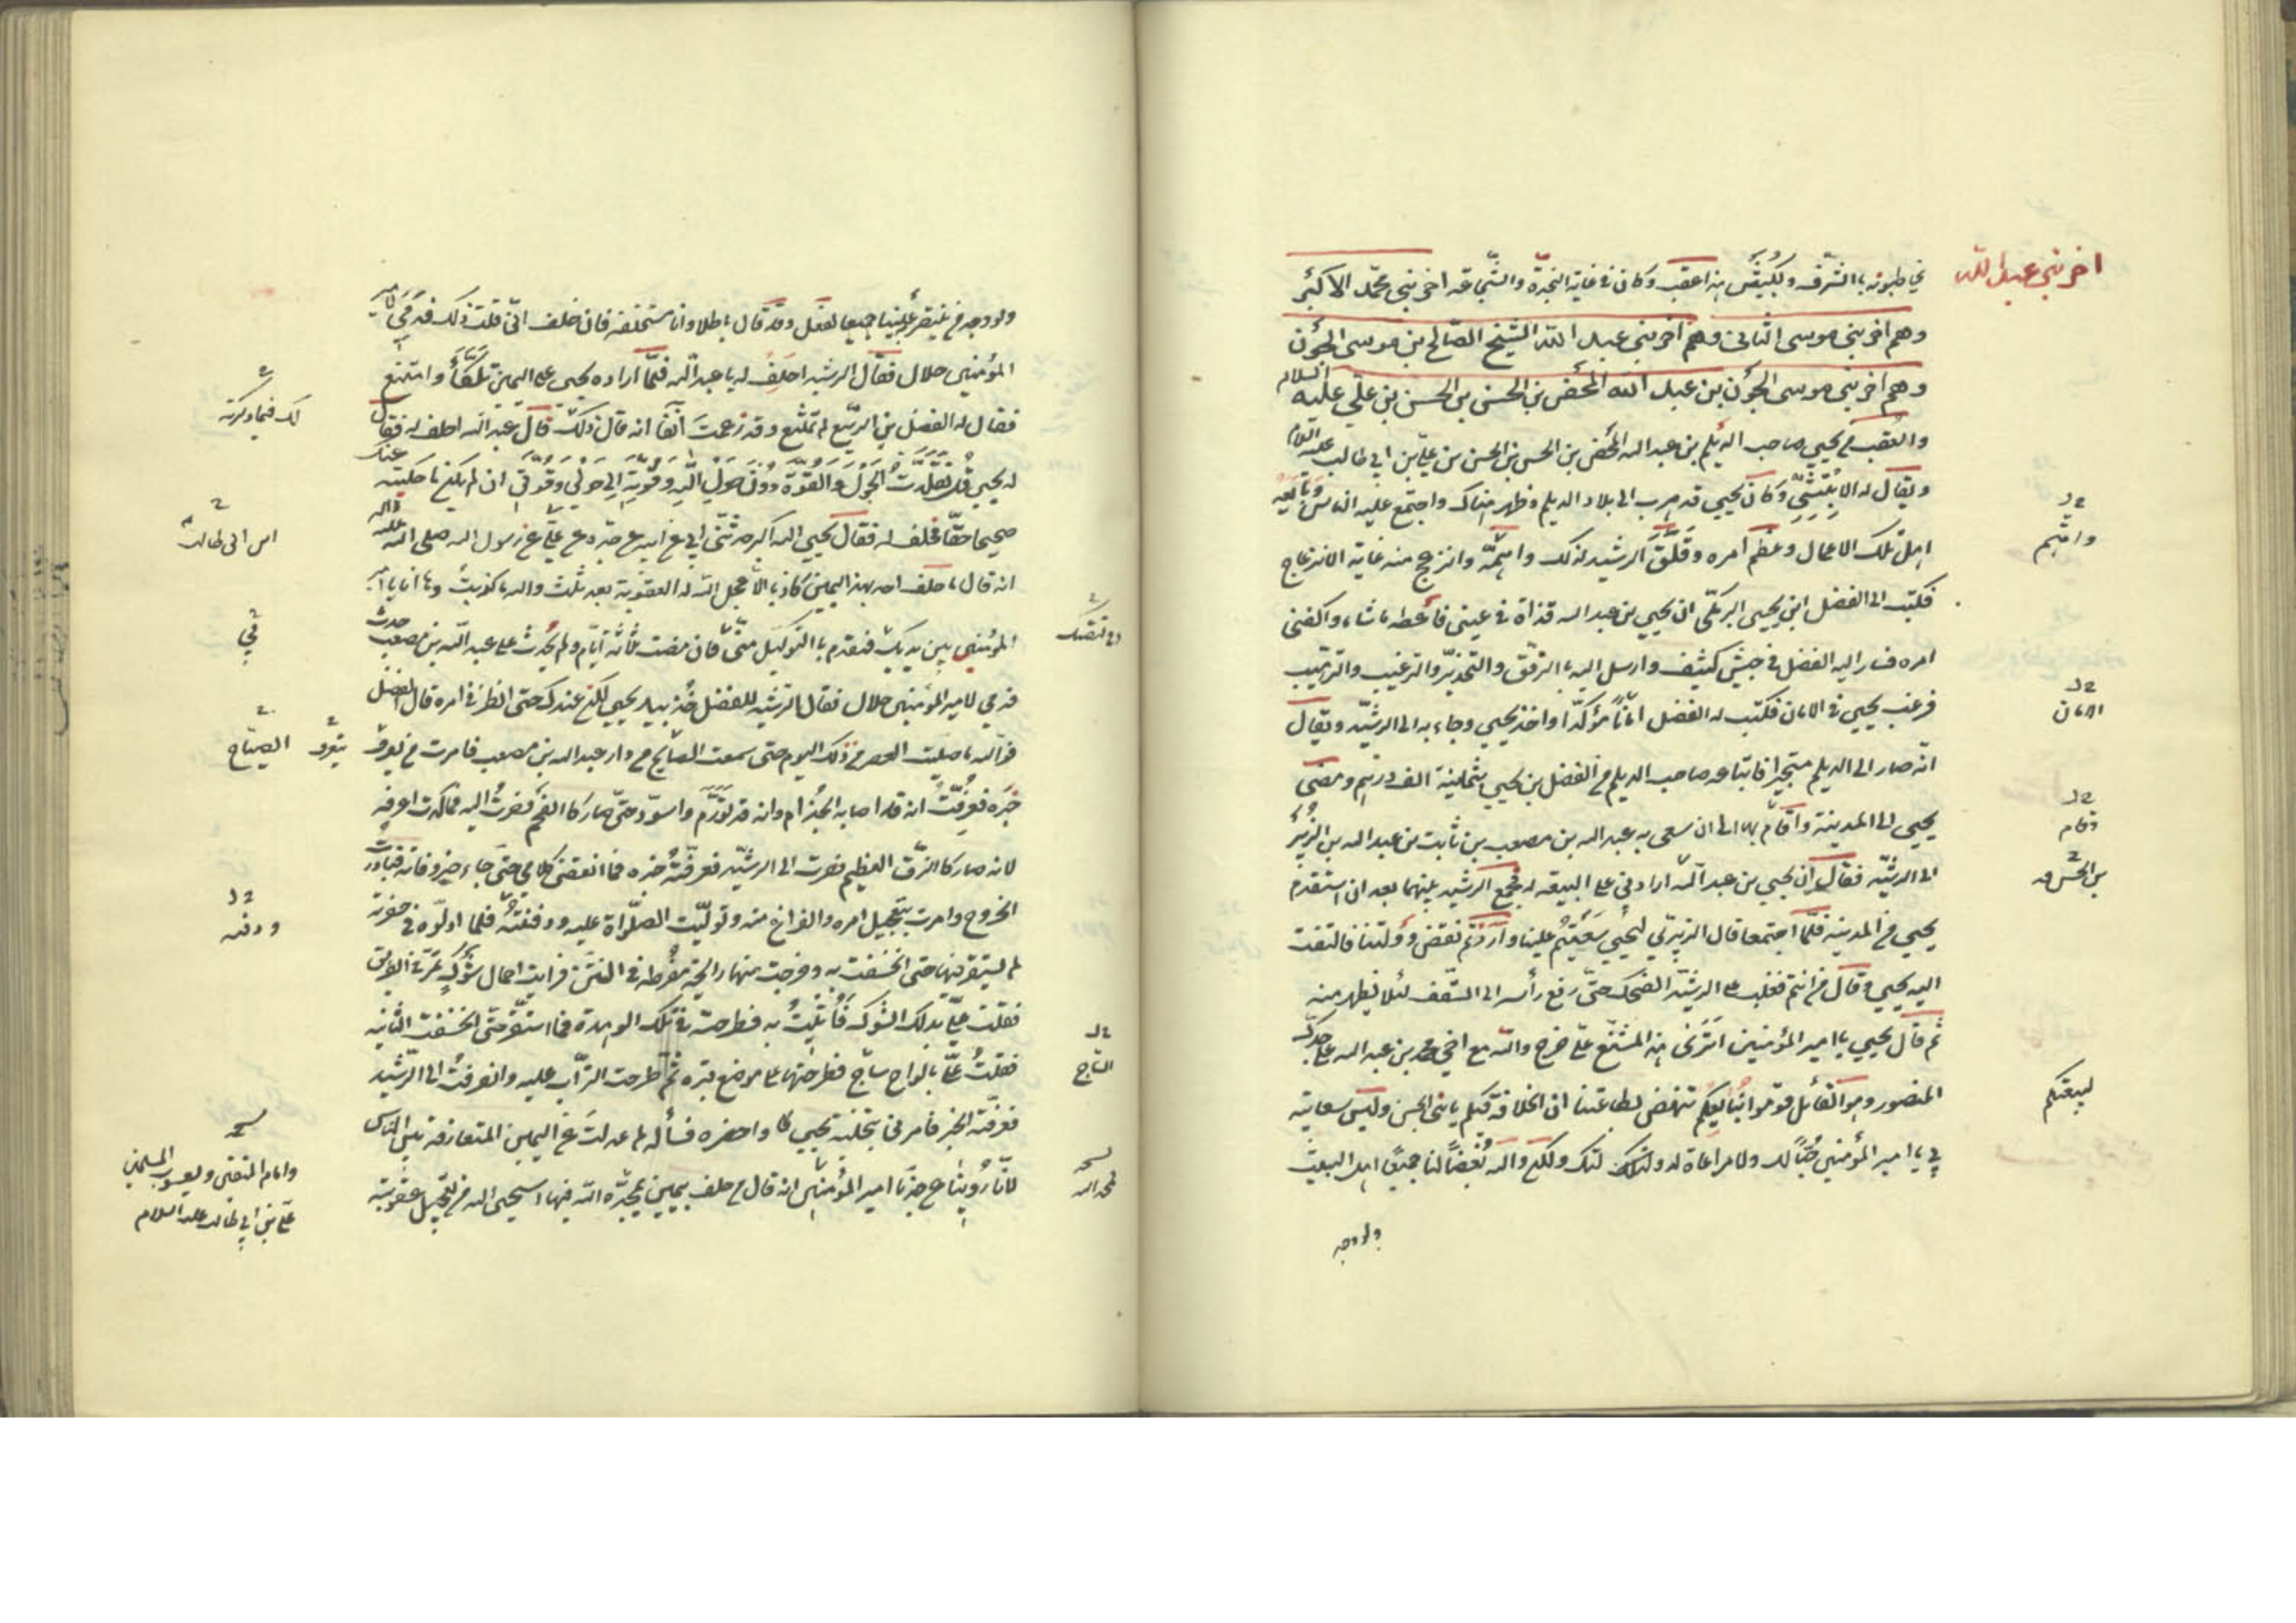 اخر بني عبد الله
يخاطبونه بالشرف ولكبيقس بن اعقب وكان في غاية النجدة والشجاعة اخر بني محمد الاكبر
وهم اخر بني موسى الثاني وهم اخر بني عبد الله الشيخ الصالح بن موسى الجون
وهم اخر بني موسى الجون بن عبد الله المحض بن الحسن بن الحسن بن علي عليه السلام
والعقب من يحيى صاحب الديلم بن عبد الله المحض بن الحسن بن الحسن بن علي بن ابي طالب عليه السلام
ويقال له الابتثي وكان يحيى قد هرب الى بلاد الديلم وظهر هناك واجتمع عليه الناس وبايعه
اهل تلك الاعمال وعظم امره وقلق الرشيد لذلك واهمه وانزعج منه غاية الانزعاج
فكتب الى الفضل ابن يحيى البرمكي ان يحيى بن عبد الله قذاة في عيني فأعطه ما شاء واكفني
امره فسار اليه الفضل في جيش كثيف وارسل اليه بالرفق والتحذير والترغيب والترهيب
فرغب يحيى في الامان فكتب له الفضل امانا مؤكدا واخذ يحيى وجاء به الى الرشيد ويقال
انه صار الى الديلم مستجيرا فابتاعه صاحب الديلم من الفضل بن يحيى بثمانية الف درهم ومضى
يحيى الى المدينة واقام بها الى ان سعى به عبد الله بن مصعب بن ثابت بن عبد الله بن الزبير
الى الرشيد فقال ان يحيى بن عبد الله ارادني على البيعة له فجمع الرشيد بينهما بعد ان استقدم
يحيى من المدينة فلما اجتمعا قال الزبيري ليحيى سعيتم علينا واردتم نقض دولتنا فالتفت
اليه يحيى وقال من انتم فغلب على الرشيد الضحك حتى رفع رأسه الى السقف لئلا يظهر منه
ثم قال يحيى يا امير المؤمنين اترى هذا المشنع علي خرج والله مع اخي محمد بن عبد الله على جدك
المنصور وهو القائل قوموا ببيعتكم ننهض بطاعتنا ان الخلافة فيكم يا بني الحسن وليس سعايته
بي يا امير المؤمنين حبا لك ولا مراعاة لدولتك ولكن والله بغضا لنا جميعا اهل البيت
ولو وجد
واهمهم
الامان
وقام
بن الحسن
لبيعتكم
ولو وجد من ينتصر به علينا جميعا لفعل وقد قال باطلا وانا مستحلفه فان حلف اني قلت ذلك فدمي لامير
المؤمنين حلال فقال الرشيد احلف له يا عبد الله فلما اراده يحيى على اليمين تلكأ وامتنع
فقال له الفضل بن الربيع لم تمتنع وقد زعمت آنفا انه قال ذلك قال عبد الله احلف له فقال
له يحيى قل تقلدت الحول والقوة دون حول الله وقوته الى حولي وقوتي ان لم يكن ما حكيته عنك
صحيحا حقا فحلف له فقال يحيى الله اكبر حدثني ابي عن ابيه عن جده عن علي عن رسول الله صلى الله عليه واله
انه قال ما حلف احد بهذه اليمين كاذبا الا عجل الله له العقوبة بعد ثلث والله ما كذبت وها انا يا امير
المؤمنين بين يديك فتقدم بالتوكيل مني فان مضت ثلاثة ايام ولم يحدث على عبد الله بن مصعب حدث
فدمي لامير المؤمنين حلال فقال الرشيد للفضل خذ بيد يحيى ليكن عندك حتى انظر في امره قال الفضل
فوالله ما صليت العصر من ذلك اليوم حتى سمعت الصايح من دار عبد الله بن مصعب فامرت من يعرف
خبره فعرفت انه قد اصابه الجذام وانه قد تورم واسود حتى صار كالفحم فصرت اليه فما كدت اعرفه
لانه صار كالزق العظيم فصرت الى الرشيد فعرفته خبره فما انقضى كلامي حتى جاء خبر وفاته فبادرت
الخروج وامرت بتعجيل امره والفراغ منه وتوليت الصلوة عليه ودفنته فلما ادلوه في حفرته
لم يستقر فيها حتى انخسفت به وخرجت منها رائحة مفرطة في النتن فرايت احمال شوك تمر في الطريق
فقلت علي بذلك الشوك فأتيت به فطرحته في تلك الوهدة فما استقر حتى انخسفت الثانية
فقلت علي بالواح ساج فطرحتها على موضع قبره ثم طرحت التراب عليه وانصرفت الى الرشيد
فعرفته الخبر فامرني بتخلية يحيى واحضره فسأله لم عدلت عن اليمين المتعارفة بين الناس
لانا روينا عن جدنا امير المؤمنين انه قال من حلف بيمين يمجد الله فيها استحيى الله من تعجيل عقوبته
لك فيما ذكرته
ابن ابي طالب
في
يتعرف
الصياح
ودفنه
الساج
وامام المتقين ويعسوب المسلمين
علي بن ابي طالب عليه السلام